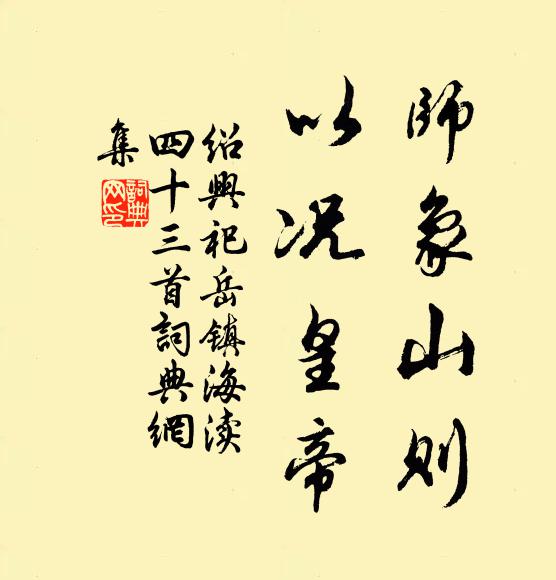 师象山则
以况皇帝
绍興祀岳镇海渎
四十三首詞典網
集
詞典
网印